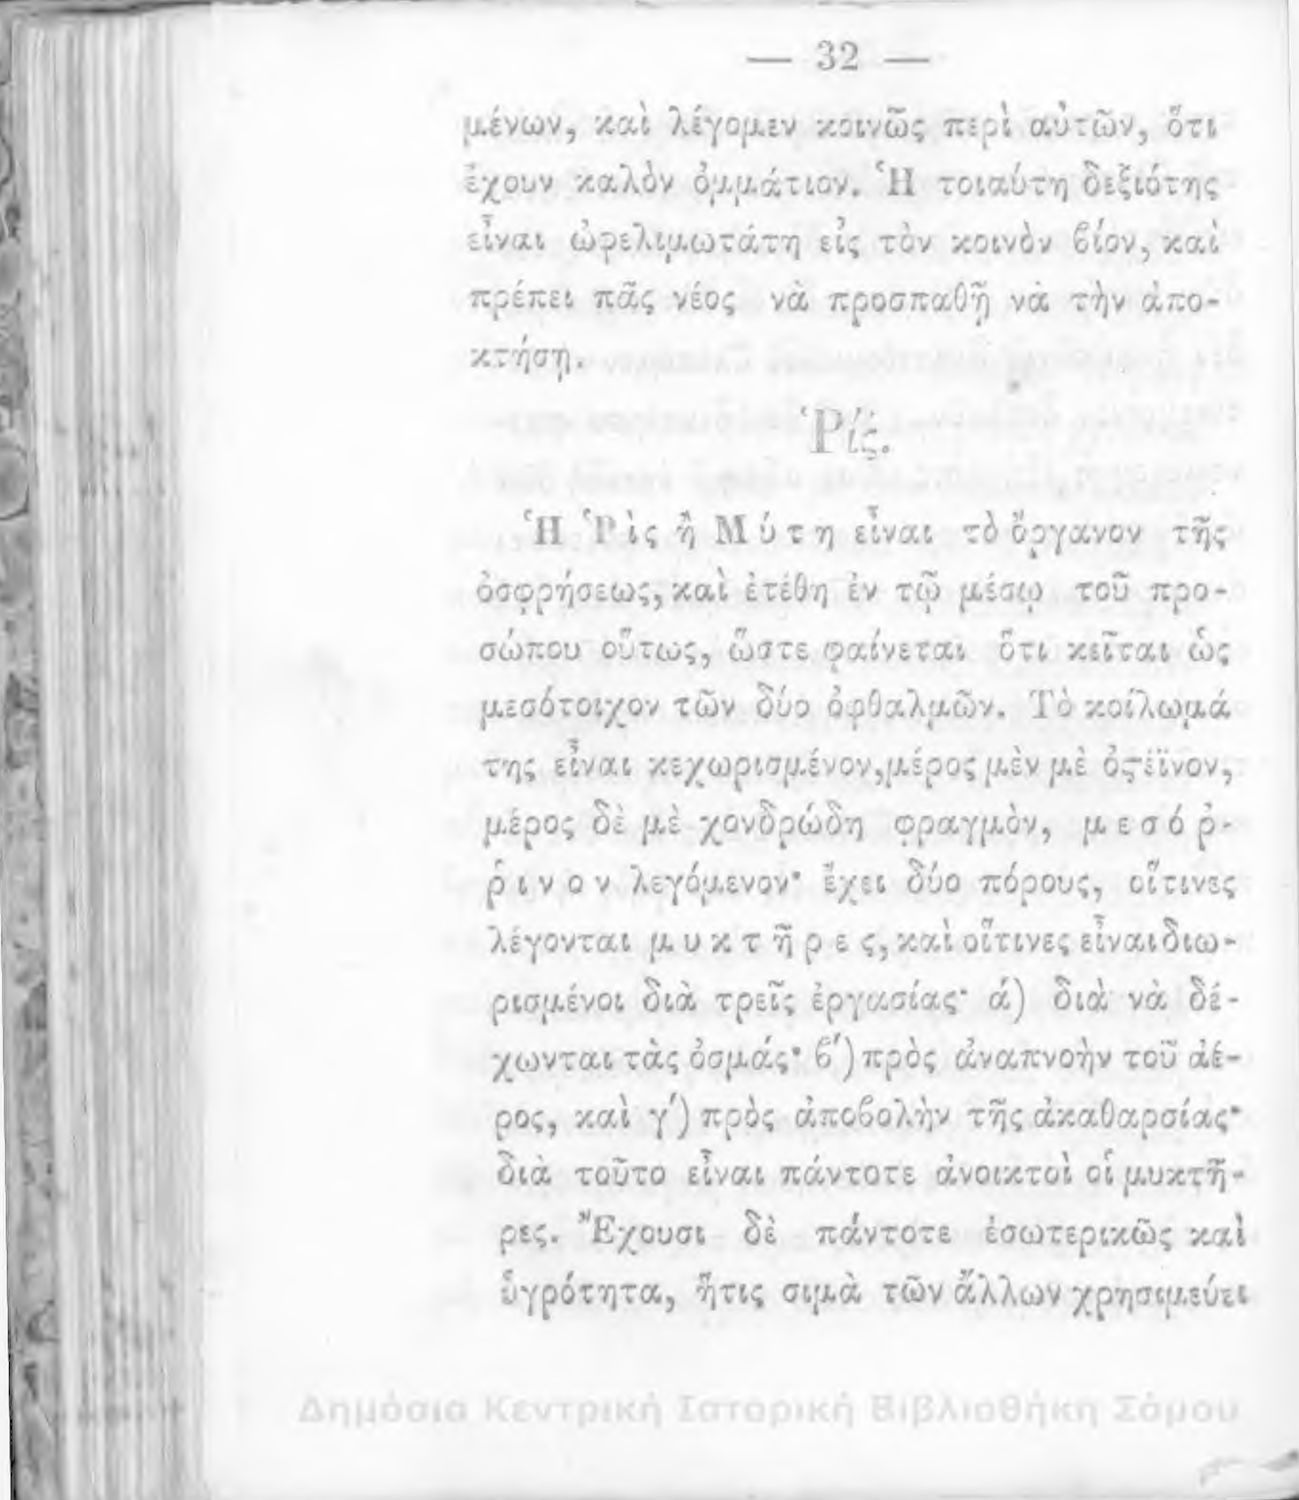 — 32 —
μένων, καὶ λέγομεν κοινῶς περὶ αὐτῶν, ὅτι
ἔχουν καλὸν ὀμμάτιον. Ἡ τοιαύτη δεξιότης
εἶναι ὠφελιμωτάτη εἰς τὸν κοινὸν ϐίον, καὶ
πρέπει πᾶς νέος νὰ προσπαθῇ νὰ τὴν ἀπο-
κτήσῃ.
Ῥίς.
Ἡ Ῥὶς ἢ Μύτη εἶναι τὸ ὄργανον τῆς
ὀσφρήσεως, καὶ ἐτέθη ἐν τῷ μέσῳ τοῦ προ-
σώπου οὕτως, ὥστε φαίνεται ὅτι κεῖται ὡς
μεσότοιχον τῶν δύο ὀφθαλμῶν. Τὸ κοίλωμά
της εἶναι κεχωρισμένον, μέρος μὲν μὲ ὀϛέϊνον,
μέρος δὲ μὲ χονδρώδη φραγμὸν, μεσόῤ-
ῥινον λεγόμενον· ἔχει δύο πόρους, οἵτινες
λέγονται μυκτῆρες, καὶ οἵτινες εἶναι διω-
ρισμένοι διὰ τρεῖς ἐργασίας· ά) διὰ νὰ δέ-
χωνται τὰς ὀσμάς· ϐ′) πρὸς ἀναπνοὴν τοῦ ἀέ-
ρος, καὶ γ′) πρὸς ἀποϐολὴν τῆς ἀκαθαρσίας·
διὰ τοῦτο εἶναι πάντοτε ἀνοικτοὶ οἱ μυκτῆ-
ρες. Ἔχουσι δὲ πάντοτε ἐσωτερικῶς καὶ
ὑγρότητα, ἥτις σιμὰ τῶν ἄλλων χρησιμεύει
Δημόσια Κεντρική Ιστορική Βιβλιοθήκη Σάμου